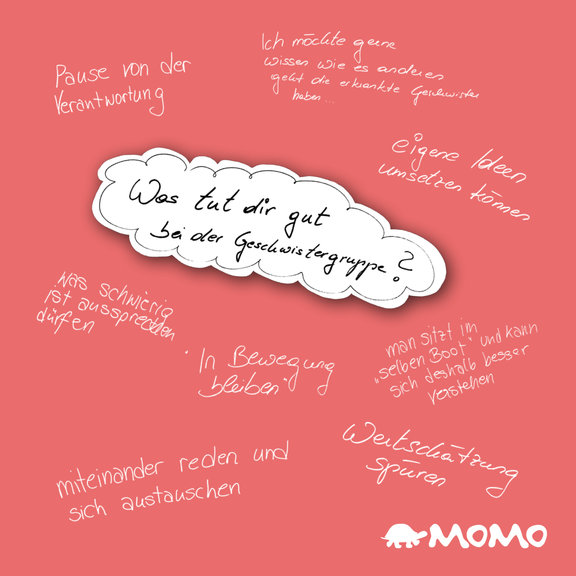 Pause von der
Verantwortung
Ich möchte gerne
wissen wie es anderen
geht die erkrankte Geschwister
haben...
eigene Ideen
umsetzen können
Was tut dir gut
bei der Geschwistergruppe?
was schwierig
ist aussprechen
dürfen
"In Bewegung
bleiben"
man sitzt im
„selben Boot" und kann
sich deshalb besser
verstehen
Wertschätzung
spüren
miteinander reden und
sich austauschen
MOMO